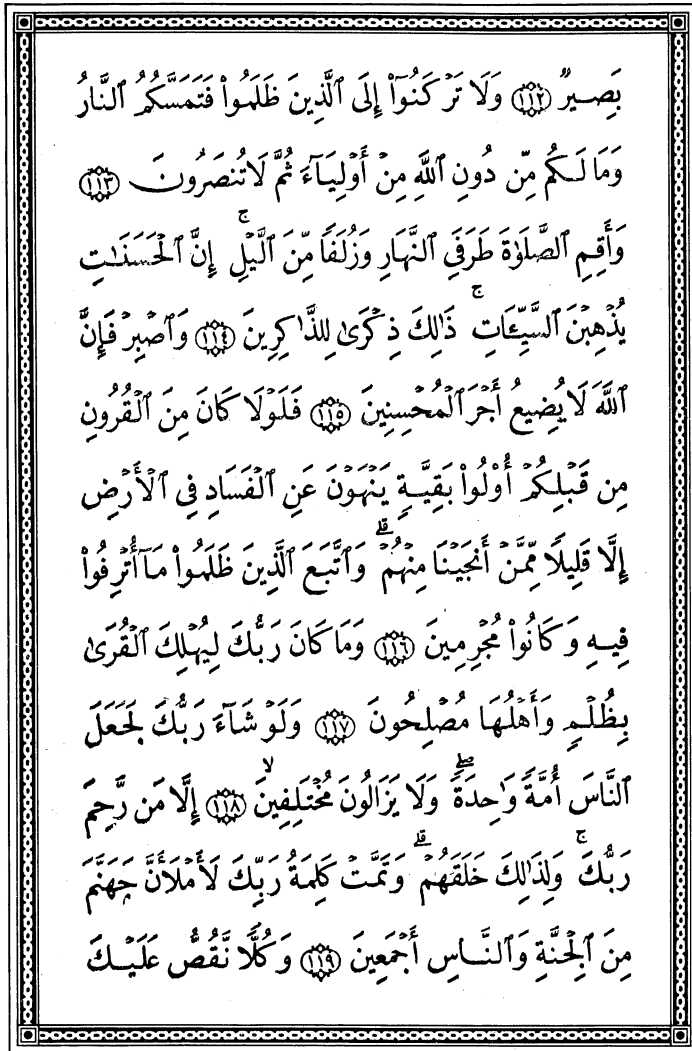 بَصِيرٌ ﴿١١٢﴾ وَلَا تَرْكَنُوٓا۟ إِلَى ٱلَّذِينَ ظَلَمُوا۟ فَتَمَسَّكُمُ ٱلنَّارُ
وَمَا لَكُم مِّن دُونِ ٱللَّهِ مِنْ أَوْلِيَآءَ ثُمَّ لَا تُنصَرُونَ ﴿١١٣﴾
وَأَقِمِ ٱلصَّلَوٰةَ طَرَفَىِ ٱلنَّهَارِ وَزُلَفًا مِّنَ ٱلَّيْلِ ۚ إِنَّ ٱلْحَسَنَـٰتِ
يُذْهِبْنَ ٱلسَّيِّـَٔاتِ ۚ ذَٰلِكَ ذِكْرَىٰ لِلذَّٰكِرِينَ ﴿١١٤﴾ وَٱصْبِرْ فَإِنَّ
ٱللَّهَ لَا يُضِيعُ أَجْرَ ٱلْمُحْسِنِينَ ﴿١١٥﴾ فَلَوْلَا كَانَ مِنَ ٱلْقُرُونِ
مِن قَبْلِكُمْ أُو۟لُوا۟ بَقِيَّةٍ يَنْهَوْنَ عَنِ ٱلْفَسَادِ فِى ٱلْأَرْضِ
إِلَّا قَلِيلًا مِّمَّنْ أَنجَيْنَا مِنْهُمْ ۗ وَٱتَّبَعَ ٱلَّذِينَ ظَلَمُوا۟ مَآ أُتْرِفُوا۟
فِيهِ وَكَانُوا۟ مُجْرِمِينَ ﴿١١٦﴾ وَمَا كَانَ رَبُّكَ لِيُهْلِكَ ٱلْقُرَىٰ
بِظُلْمٍ وَأَهْلُهَا مُصْلِحُونَ ﴿١١٧﴾ وَلَوْ شَآءَ رَبُّكَ لَجَعَلَ
ٱلنَّاسَ أُمَّةً وَٰحِدَةً ۖ وَلَا يَزَالُونَ مُخْتَلِفِينَ ۙ ﴿١١٨﴾ إِلَّا مَن رَّحِمَ
رَبُّكَ ۚ وَلِذَٰلِكَ خَلَقَهُمْ ۗ وَتَمَّتْ كَلِمَةُ رَبِّكَ لَأَمْلَأَنَّ جَهَنَّمَ
مِنَ ٱلْجِنَّةِ وَٱلنَّاسِ أَجْمَعِينَ ﴿١١٩﴾ وَكُلًّا نَّقُصُّ عَلَيْكَ